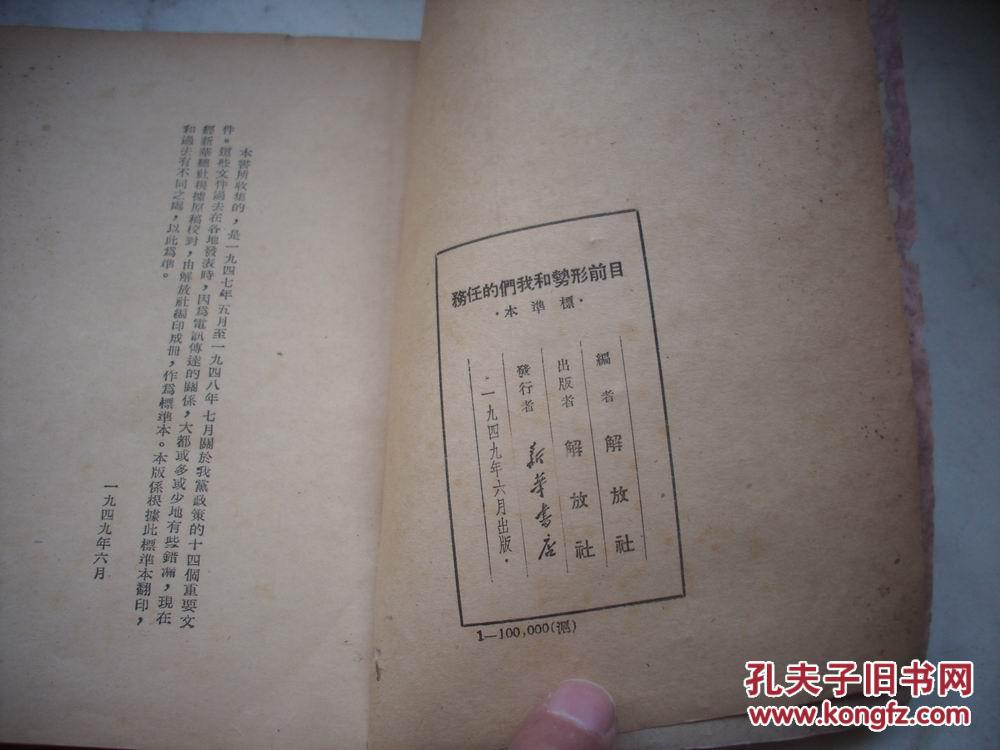 本書所收集的，是一九四七年五月至一九四八年七月關於我黨政策的十四個重要文
件。這些文件過去在各地發表時，因爲電訊傳達的關係，大都或多或少地有些錯漏，現在
經新華總社根據原稿校對，由解放社編印成冊，作爲標準本。本版係根據此標準本翻印，
和過去有不同之處，以此爲準。
一九四九年六月
務任的們我和勢形前目
·本準標·
編者 解放社
出版者 解放社
發行者 新華書店
·一九四九年六月出版·
1—100,000(滬)
孔夫子旧书网
www.kongfz.com